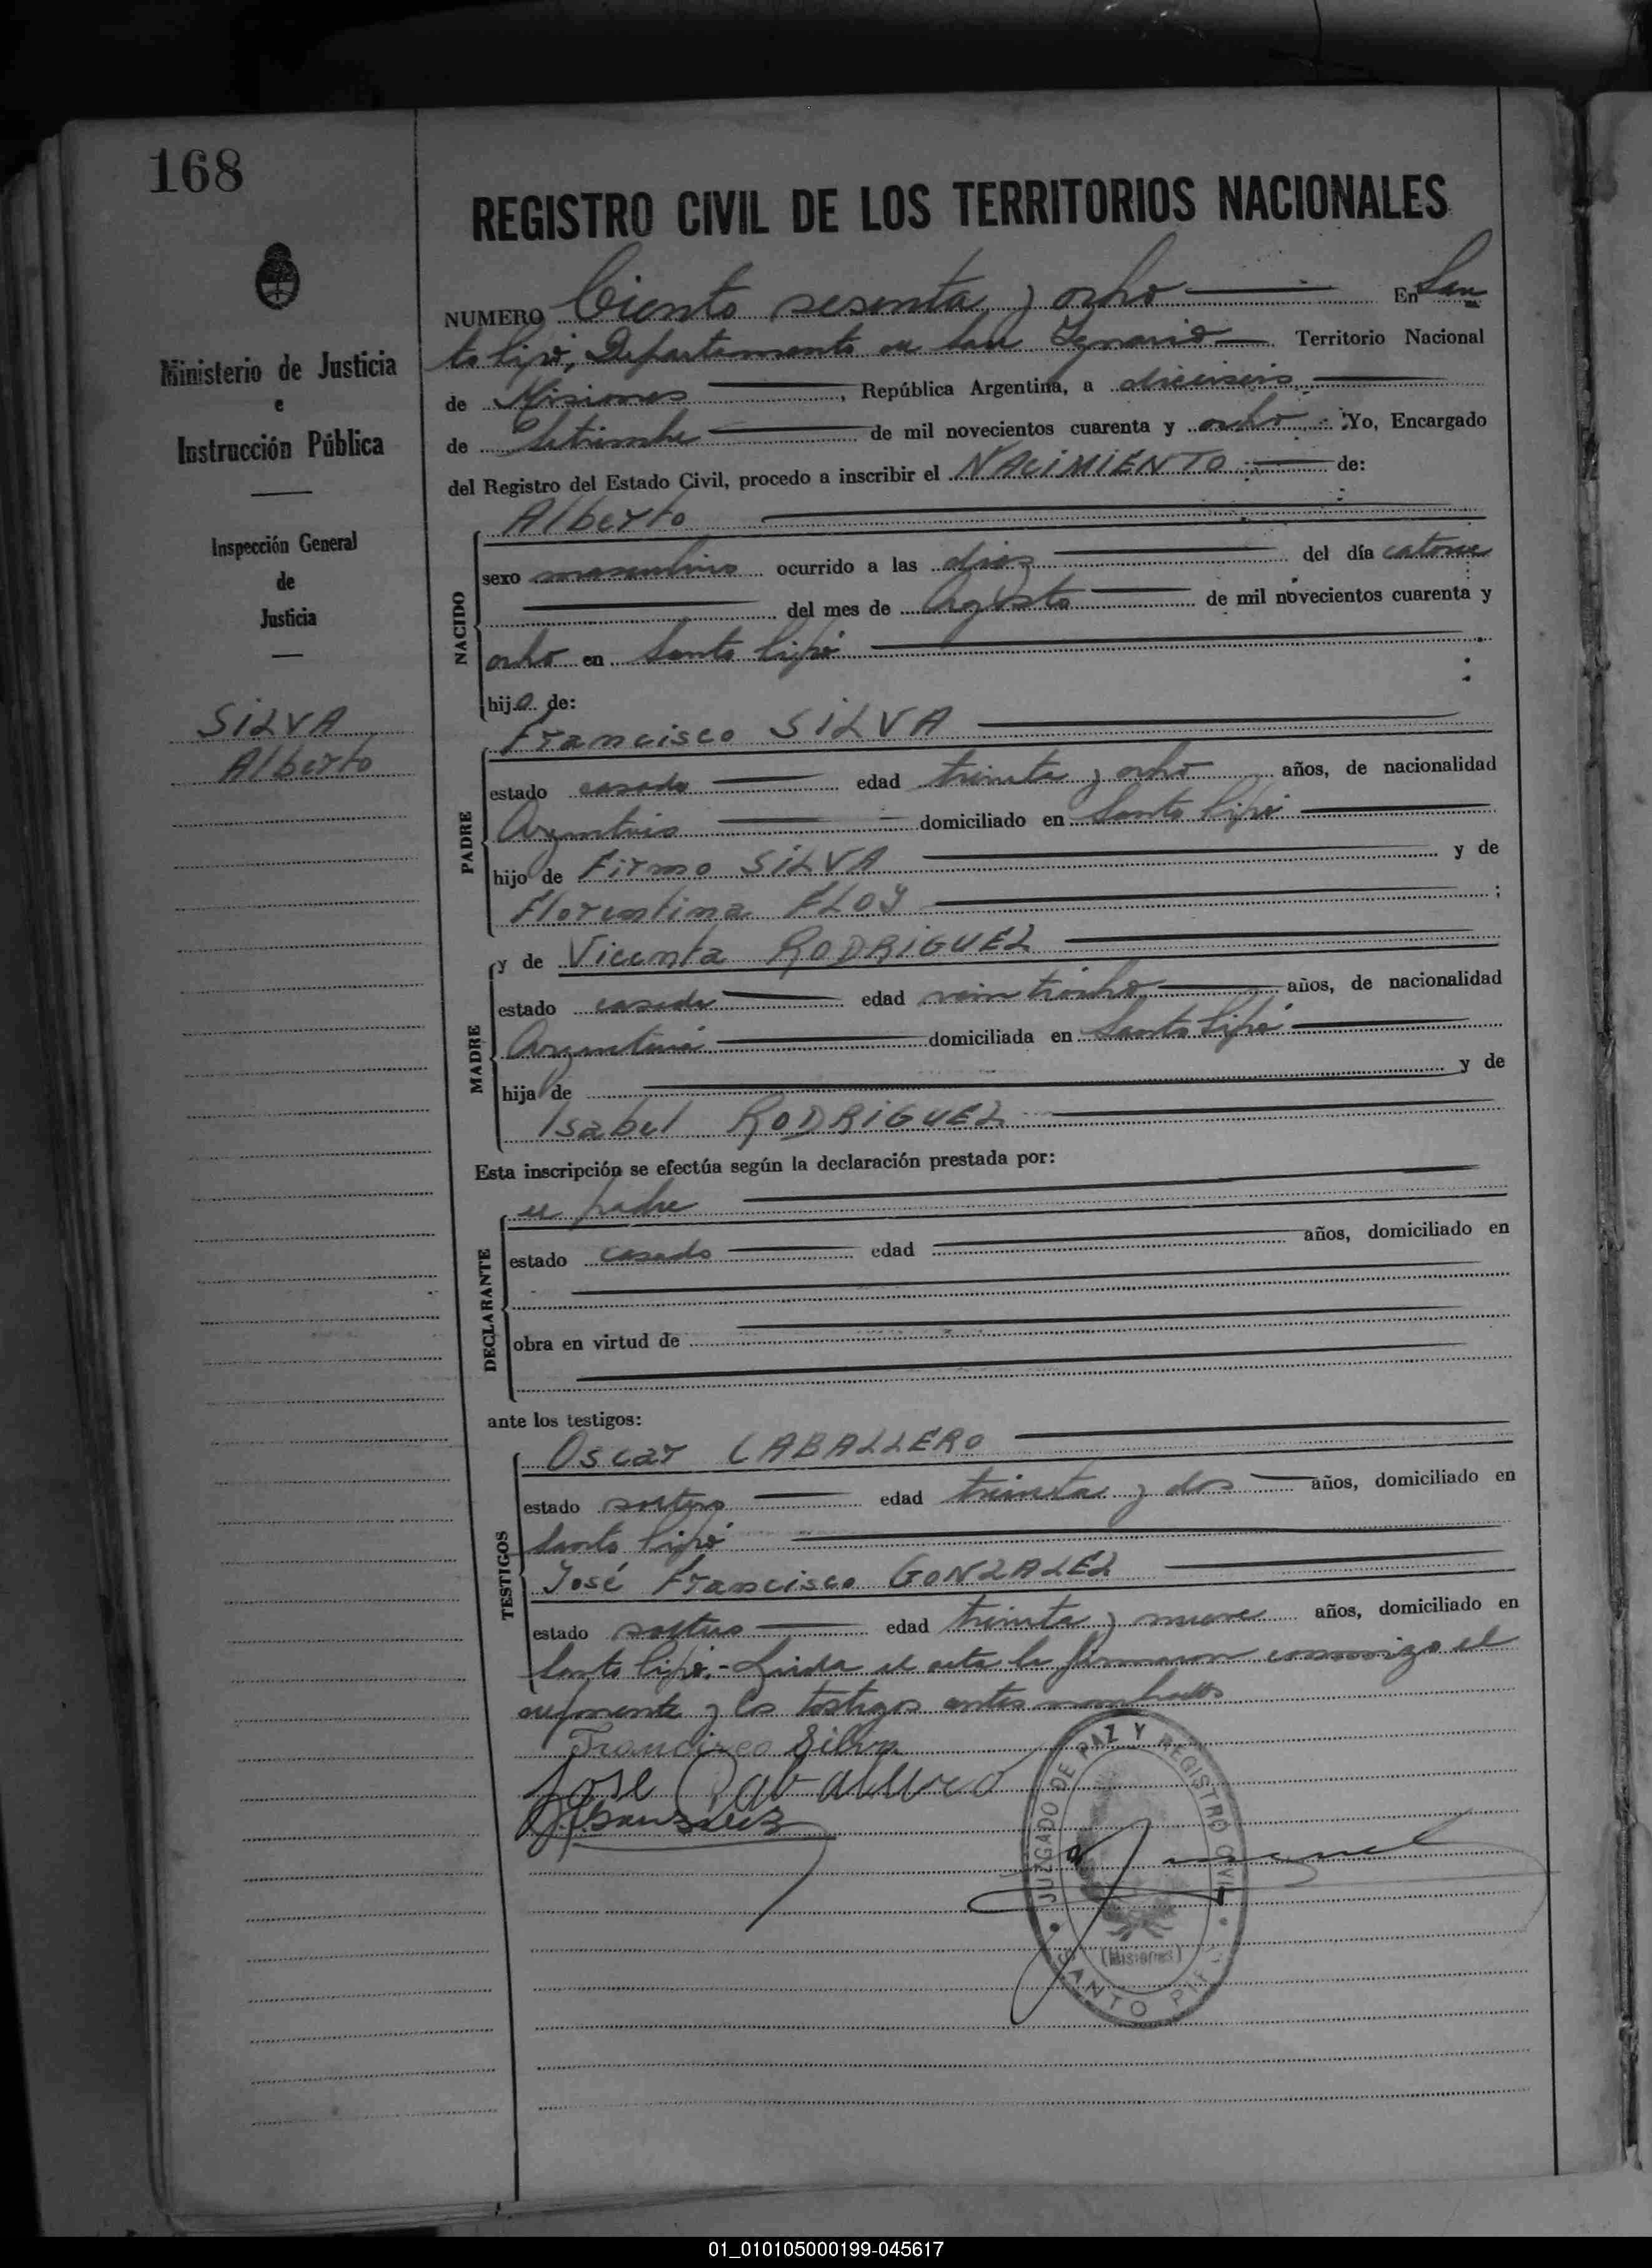 168
REGISTRO CIVIL DE LOS TERRITORIOS NACIONALES
Ministerio de Justicia
e
Instrucción Pública
Inspección General
de
Justicia
SILVA
Alberto
NUMERO Ciento sesenta y ocho En San
to Pipó, Departamento de San Ignacio Territorio Nacional
de Misiones, República Argentina, a dieciseis
de Setiembre de mil novecientos cuarenta y ocho Yo, Encargado
del Registro del Estado Civil, procedo a inscribir el NACIMIENTO de:
NACIDO
Alberto
sexo masculino ocurrido a las dies del día catorce
del mes de Agosto de mil novecientos cuarenta y
ocho en Santo Pipó
hijo de:
PADRE
Francisco SILVA
estado casado edad treinta y ocho años, de nacionalidad
Argentino domiciliado en Santo Pipó
hijo de Firmo SILVA y de
Florentina FLOY;
MADRE
y de Vicenta RODRIGUEZ
estado casada edad veintiocho años, de nacionalidad
Argentina domiciliada en Santo Pipó
hija de y de
Isabel RODRIGUEZ
Esta inscripción se efectúa según la declaración prestada por:
DECLARANTE
el padre
estado casado edad años, domiciliado en
obra en virtud de
ante los testigos:
TESTIGOS
Oscar CABALLERO
estado soltero edad treinta y dos años, domiciliado en
Santo Pipó
José Francisco GONZALEZ
estado soltero edad treinta y nueve años, domiciliado en
Santo Pipó.- Leida el acta la firmaron conmigo el
exponente y los testigos antes nombrados
Francisco Silva
Jose Caballero
JFGonzalez
JUZGADO DE PAZ Y REGISTRO CIVIL
(Misiones)
SANTO PIPO
01_010105000199-045617